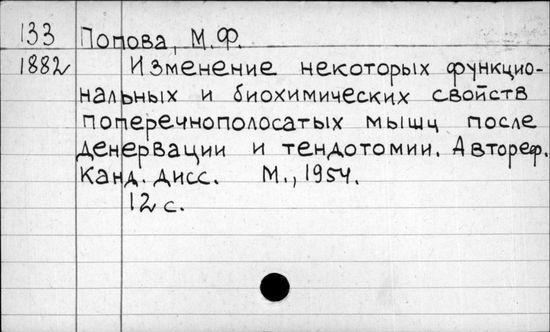 133 Попова, М.Ф.
1882 Изменение некоторых функцио-
нальных и биохимических свойств
поперечнополосатых мышц после
денервации и тендотомии. Автореф.
канд. дисс. М., 1954.
12 с.